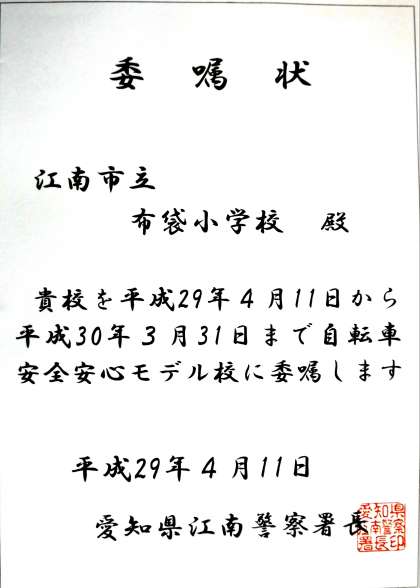 委嘱状
江南市立
布袋小学校 殿
貴校を平成29年4月11日から
平成30年3月31日まで自転車
安全安心モデル校に委嘱します
平成29年4月11日
愛知県江南警察署長